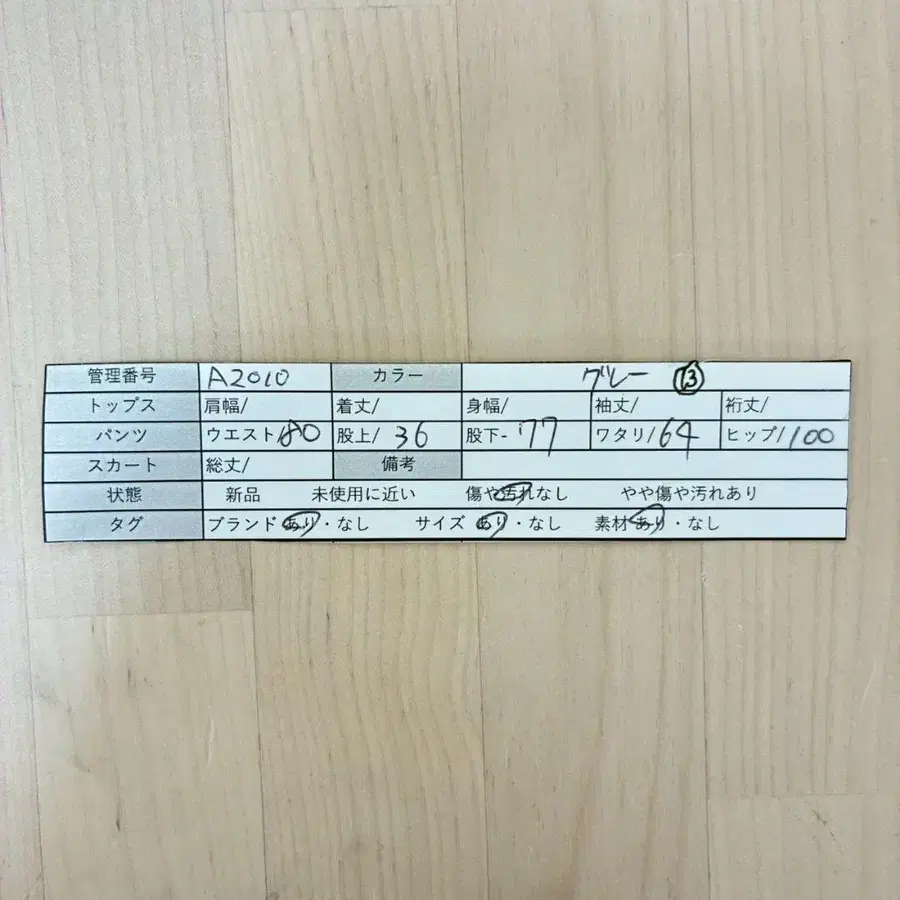 管理番号 A2010 カラー グレー ⑬
トップス 肩幅/ 着丈/ 身幅/ 袖丈/ 裄丈/
パンツ ウエスト/80 股上/36 股下-77 ワタリ/64 ヒップ/100
スカート 総丈/ 備考
状態 新品 未使用に近い 傷や汚れなし やや傷や汚れあり
タグ ブランド あり・なし サイズ あり・なし 素材 あり・なし